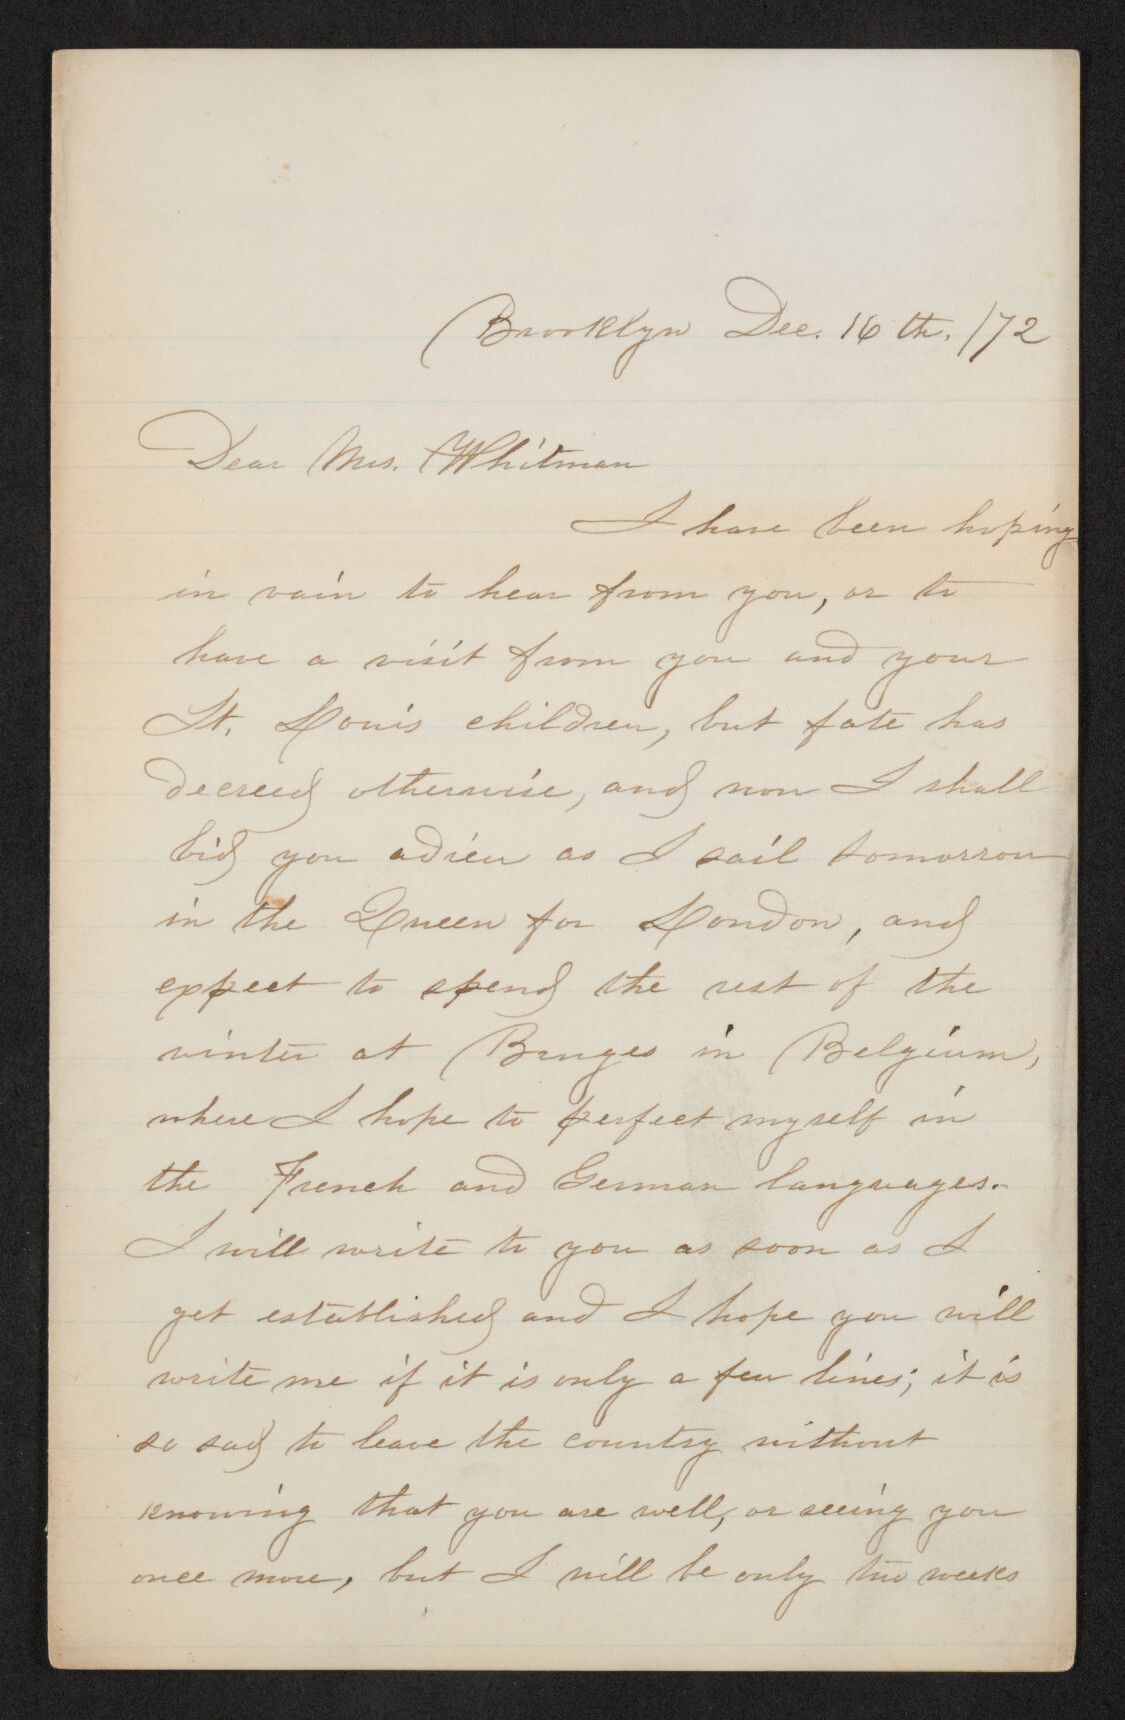 Brooklyn Dec. 16th. /72
Dear Mrs. Whitman
I have been hoping
in vain to hear from you, or to
have a visit from you and your
St. Louis children, but fate has
decreed otherwise, and now I shall
bid you adieu as I sail tomorrow
in the Queen for London, and
expect to spend the rest of the
winter at Bruges in Belgium,
where I hope to perfect myself in
the French and German languages.
I will write to you as soon as I
get established and I hope you will
write me if it is only a few lines; it is
so sad to leave the country without
knowing that you are well, or seeing you
once more, but I will be only two weeks